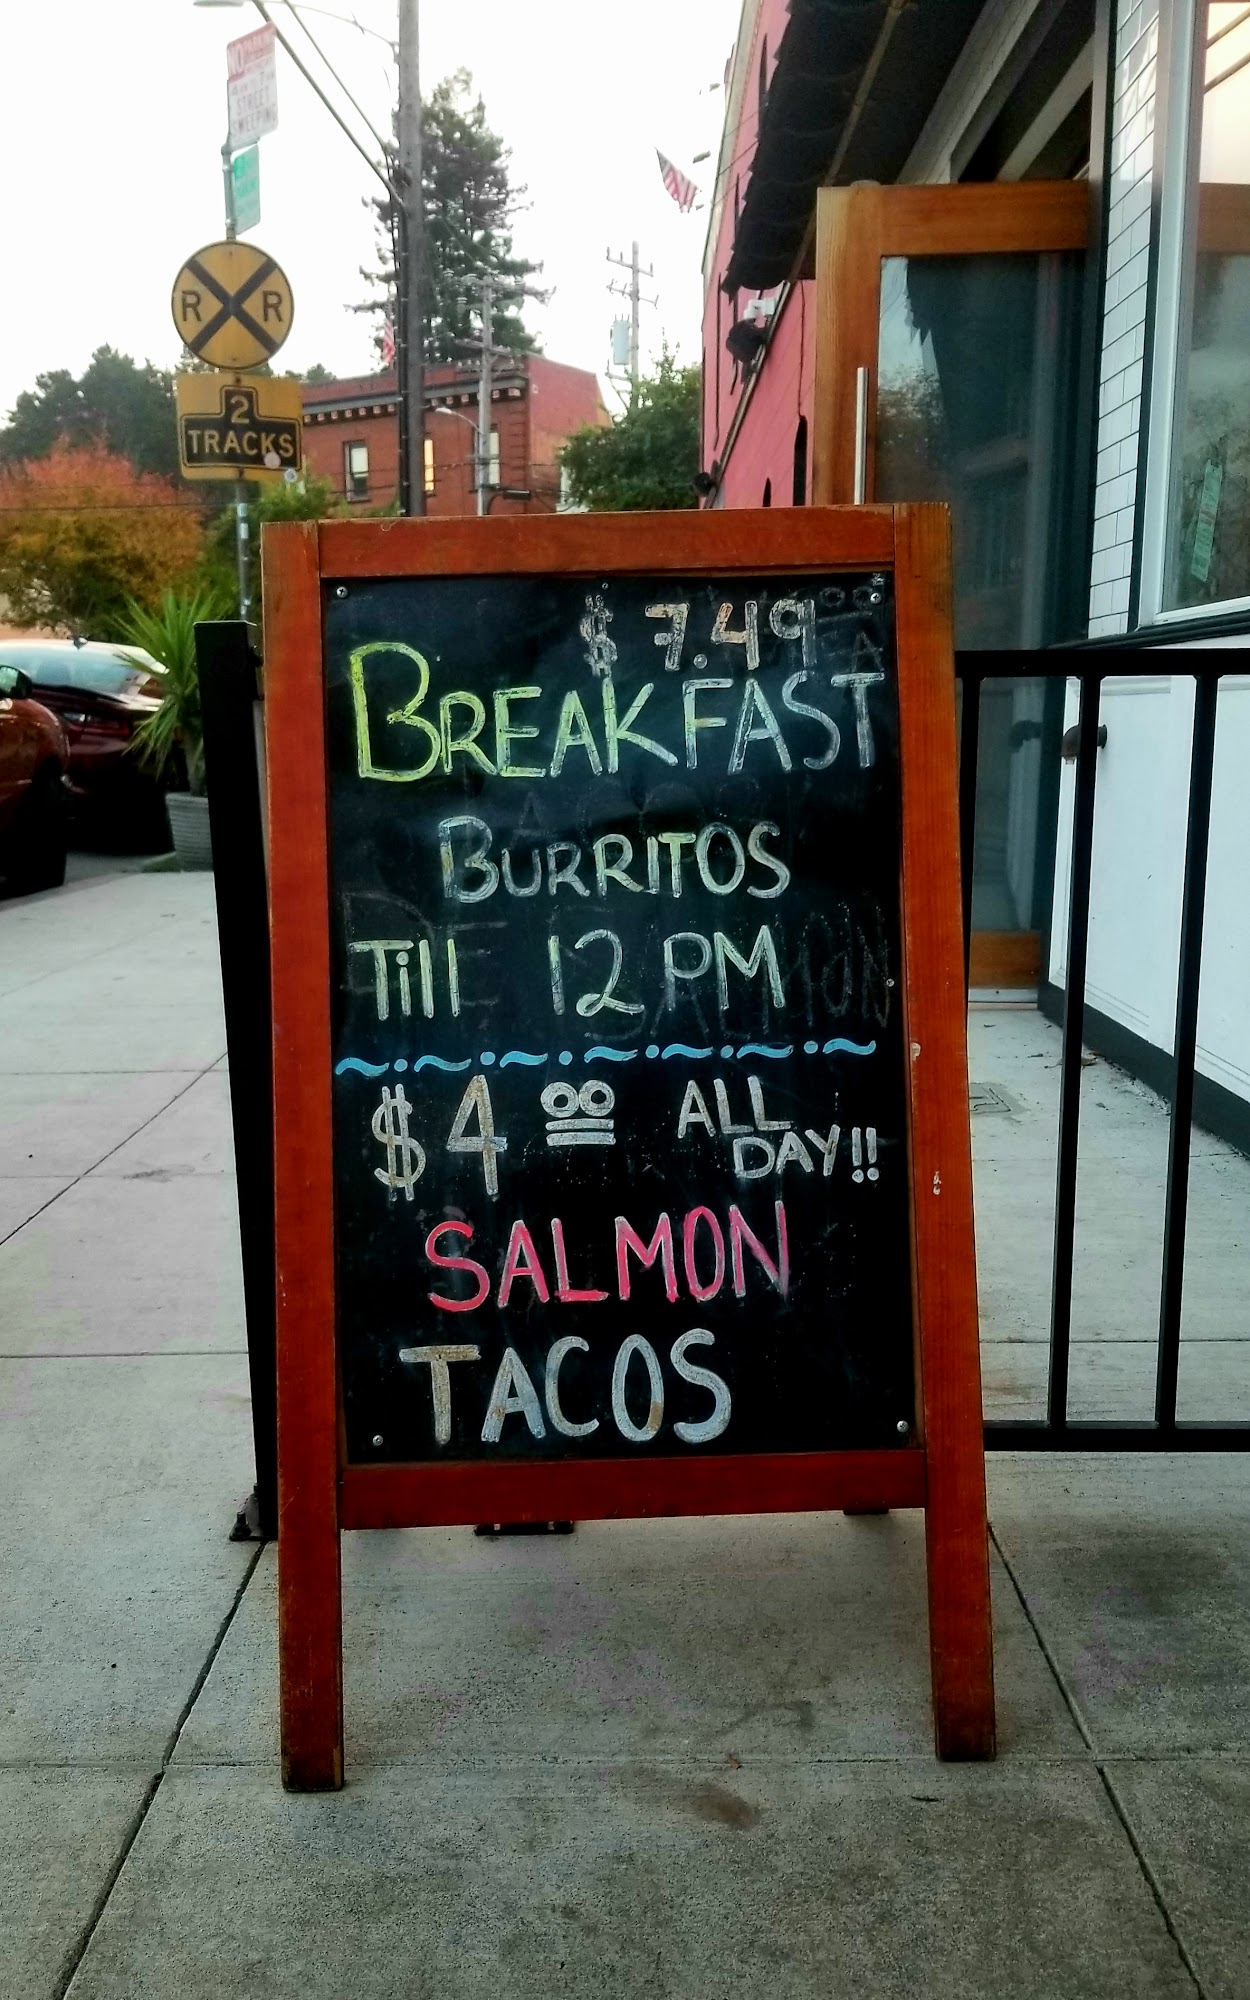 NO PARKING
STREET
SWEEPING
R R
2
TRACKS
$7.49
BREAKFAST
BURRITOS
Till 12 PM
$4 00 ALL
DAY!!
SALMON
TACOS